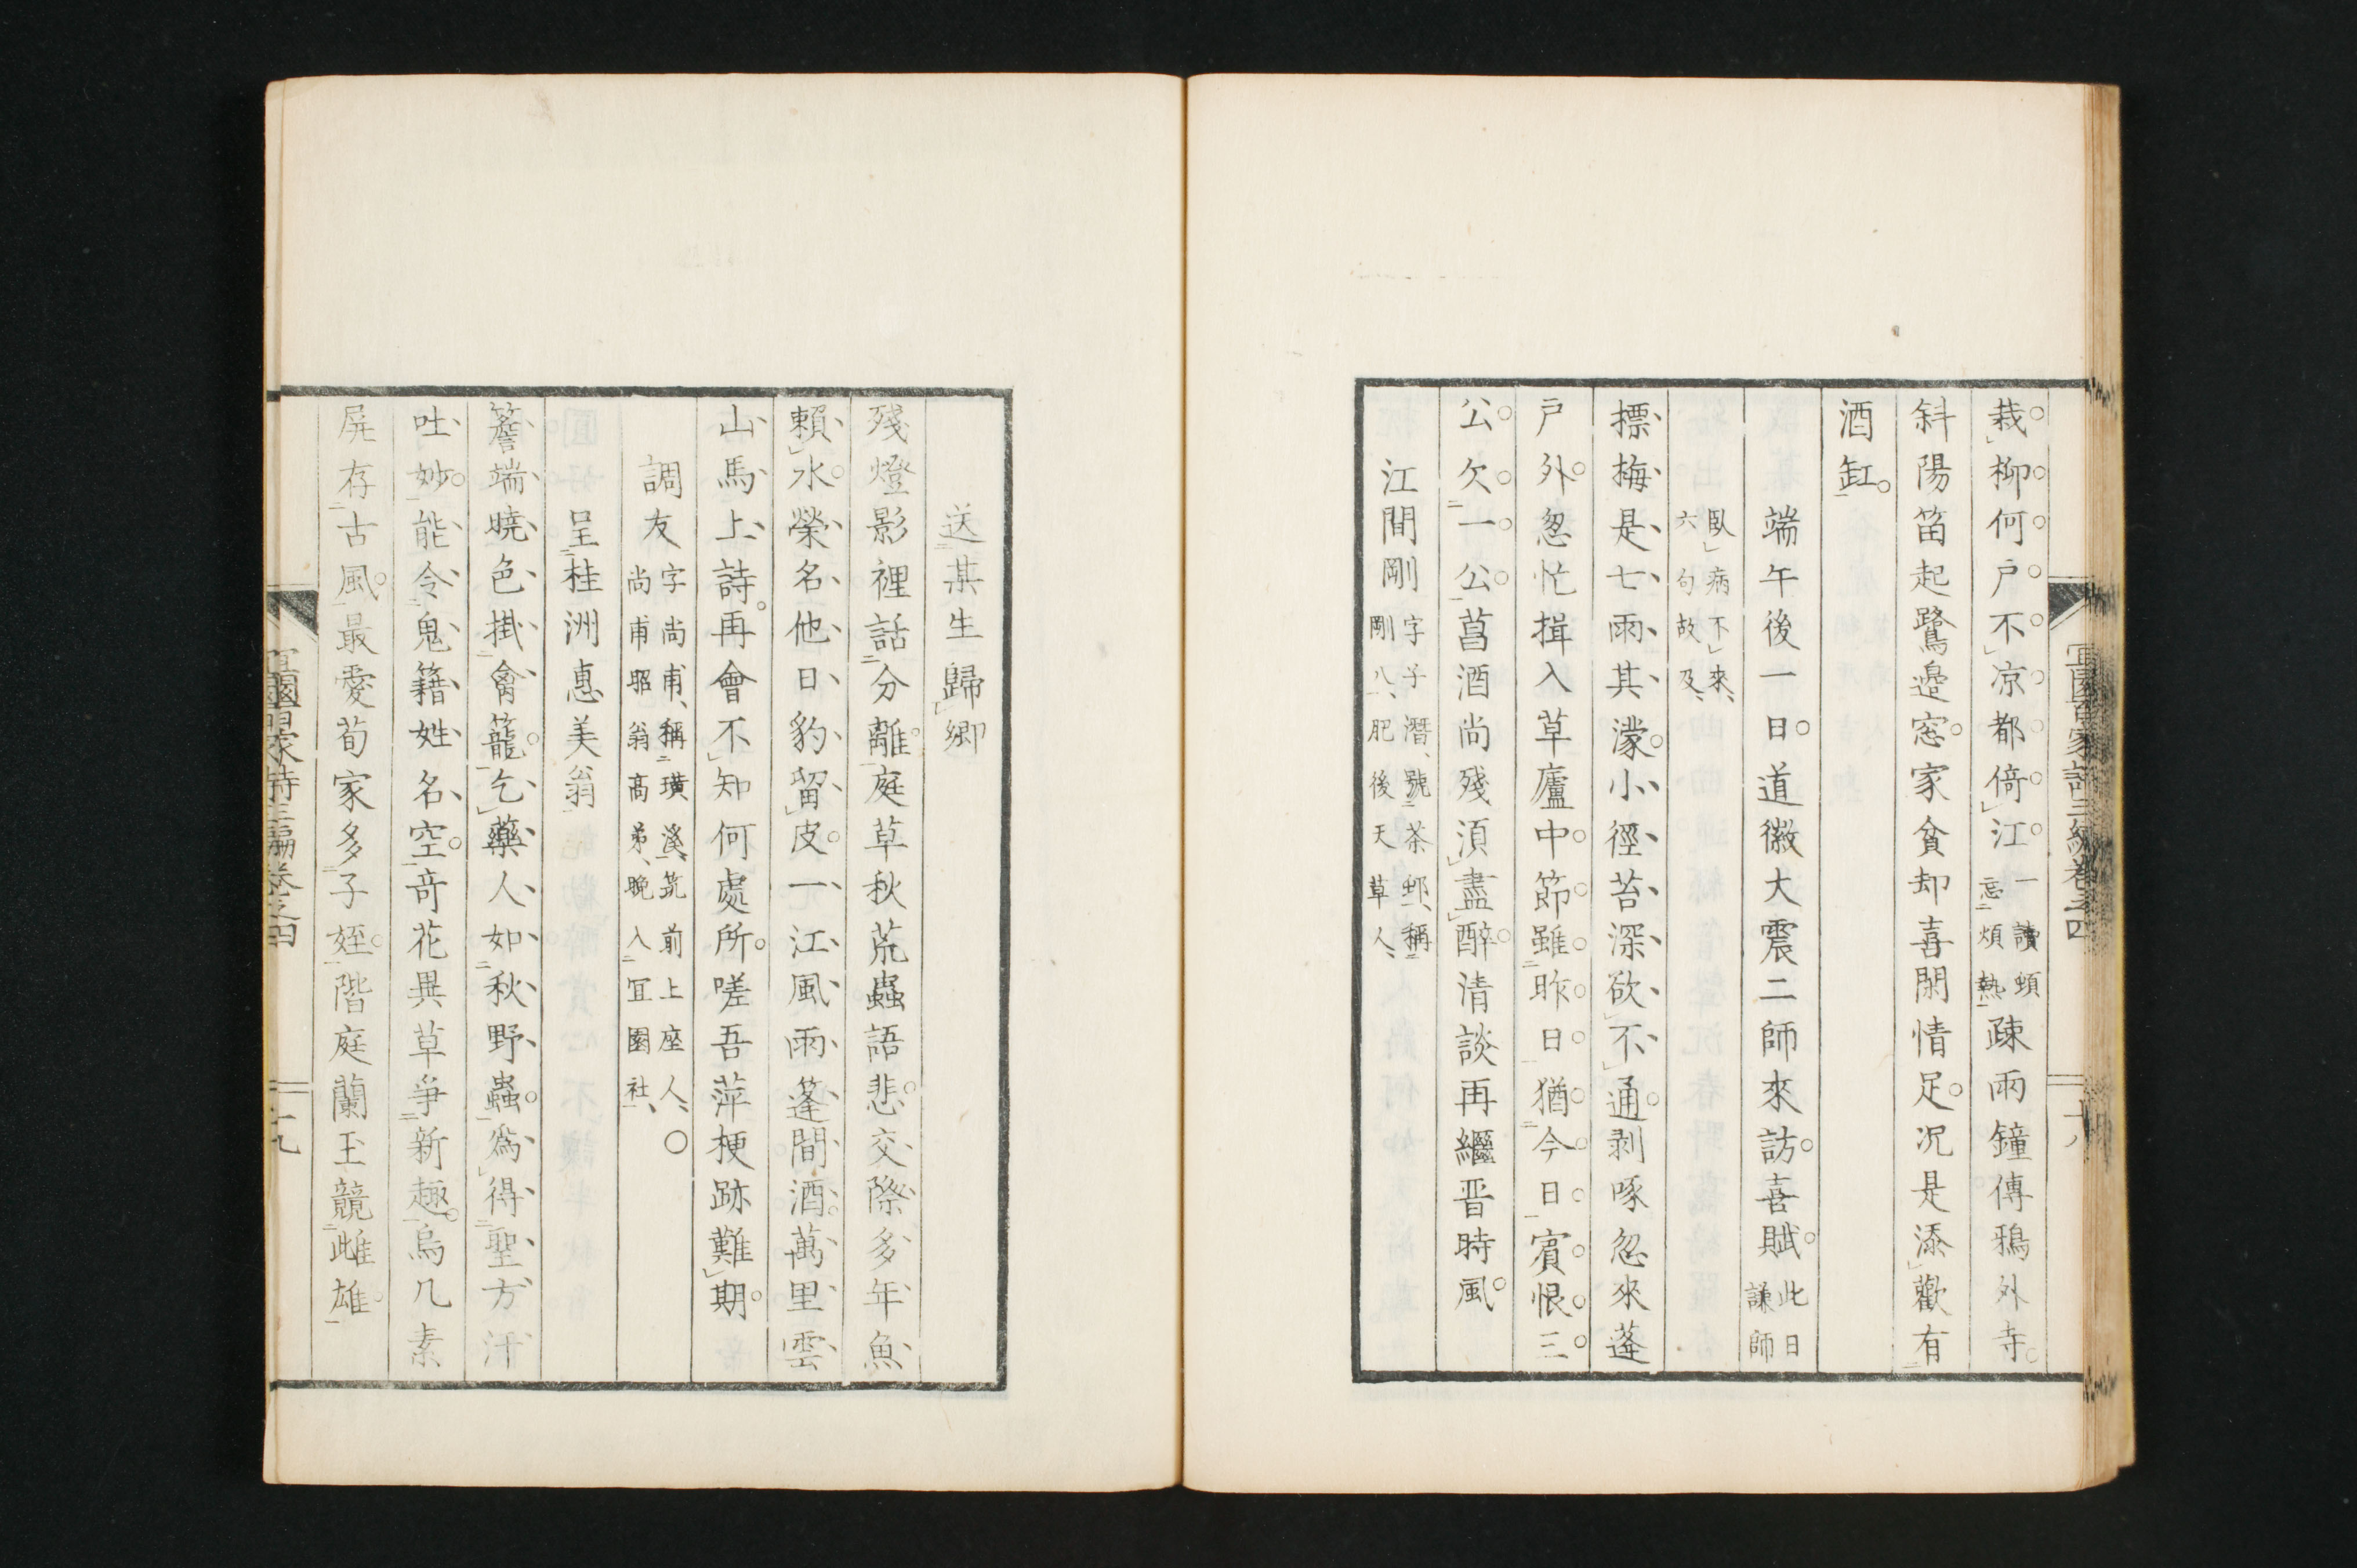 栽柳何戸不涼都倚江一讀蝢忘煩熱疎雨鐘傳鴉外寺
斜陽笛起鷺邊窓家貧却喜閑情足況是添歡有
酒缸
端午後一日道徽大震二師來訪喜賦此日謙師
臥病不來六句故及
摽梅是七雨其濛小徑苔深欲不通剥啄忽來蓬
戸外忽忙揖入草廬中節雖昨日猶今日賓恨三
公欠一公菖酒尚殘須盡醉清談再繼晋時風
江間剛字子潛號茶邨稱剛八肥後天草人
送某生歸郷
殘燈影裡話分離庭草秋荒蟲語悲交際多年魚
頼水榮名他日豹留皮一江風雨篷間酒萬里雲
山馬上詩再會不知何處所嗟吾萍梗跡難期
調友字尚甫稱璜溪筑前上座人〇尚甫昭翁髙弟晩入宜園社
呈桂洲惠美翁
簷端曉色掛禽籠乞藥人如秋野蟲爲得聖方汗
吐妙能令鬼籍姓名空奇花異草爭新趣烏几素
屏存古風最愛荀家多子姪階庭蘭玉競雌雄
宜園百家詩三編卷之四
十九